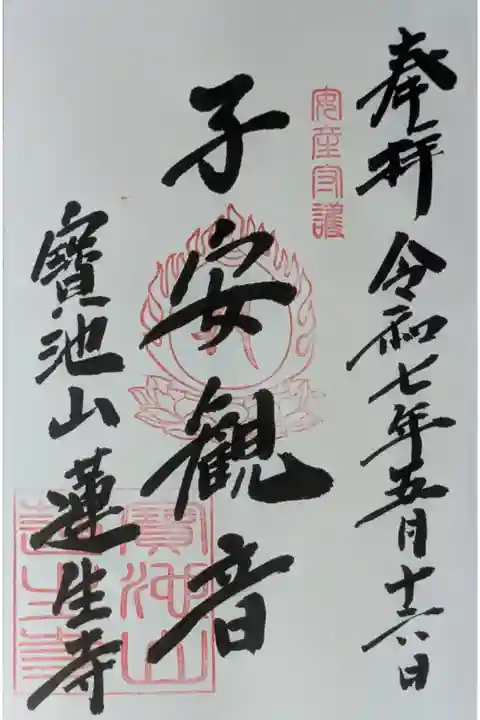 奉拝 令和七年五月十六日
安産守護
子安観音
寳池山 蓮生寺
寳池山
蓮生寺